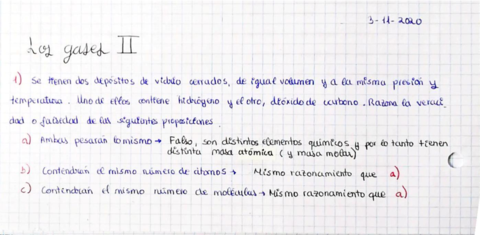 3-11-2020
Los gases II
1) Se tienen dos depósitos de vidrio cerrados, de igual volumen y a la misma presión y
temperatura. Uno de ellos contiene hidrógeno y el otro, dióxido de carbono. Razona la veraci
dad o falsedad de las siguientes proposiciones.
a) Ambas pesarán lo mismo → Falso, son distintos elementos químicos y por lo tanto tienen
distinta masa atómica (y masa molar)
b) Contendrán el mismo número de átomos → Mismo razonamiento que a)
c) Contendrían el mismo número de moléculas → Mismo razonamiento que a)